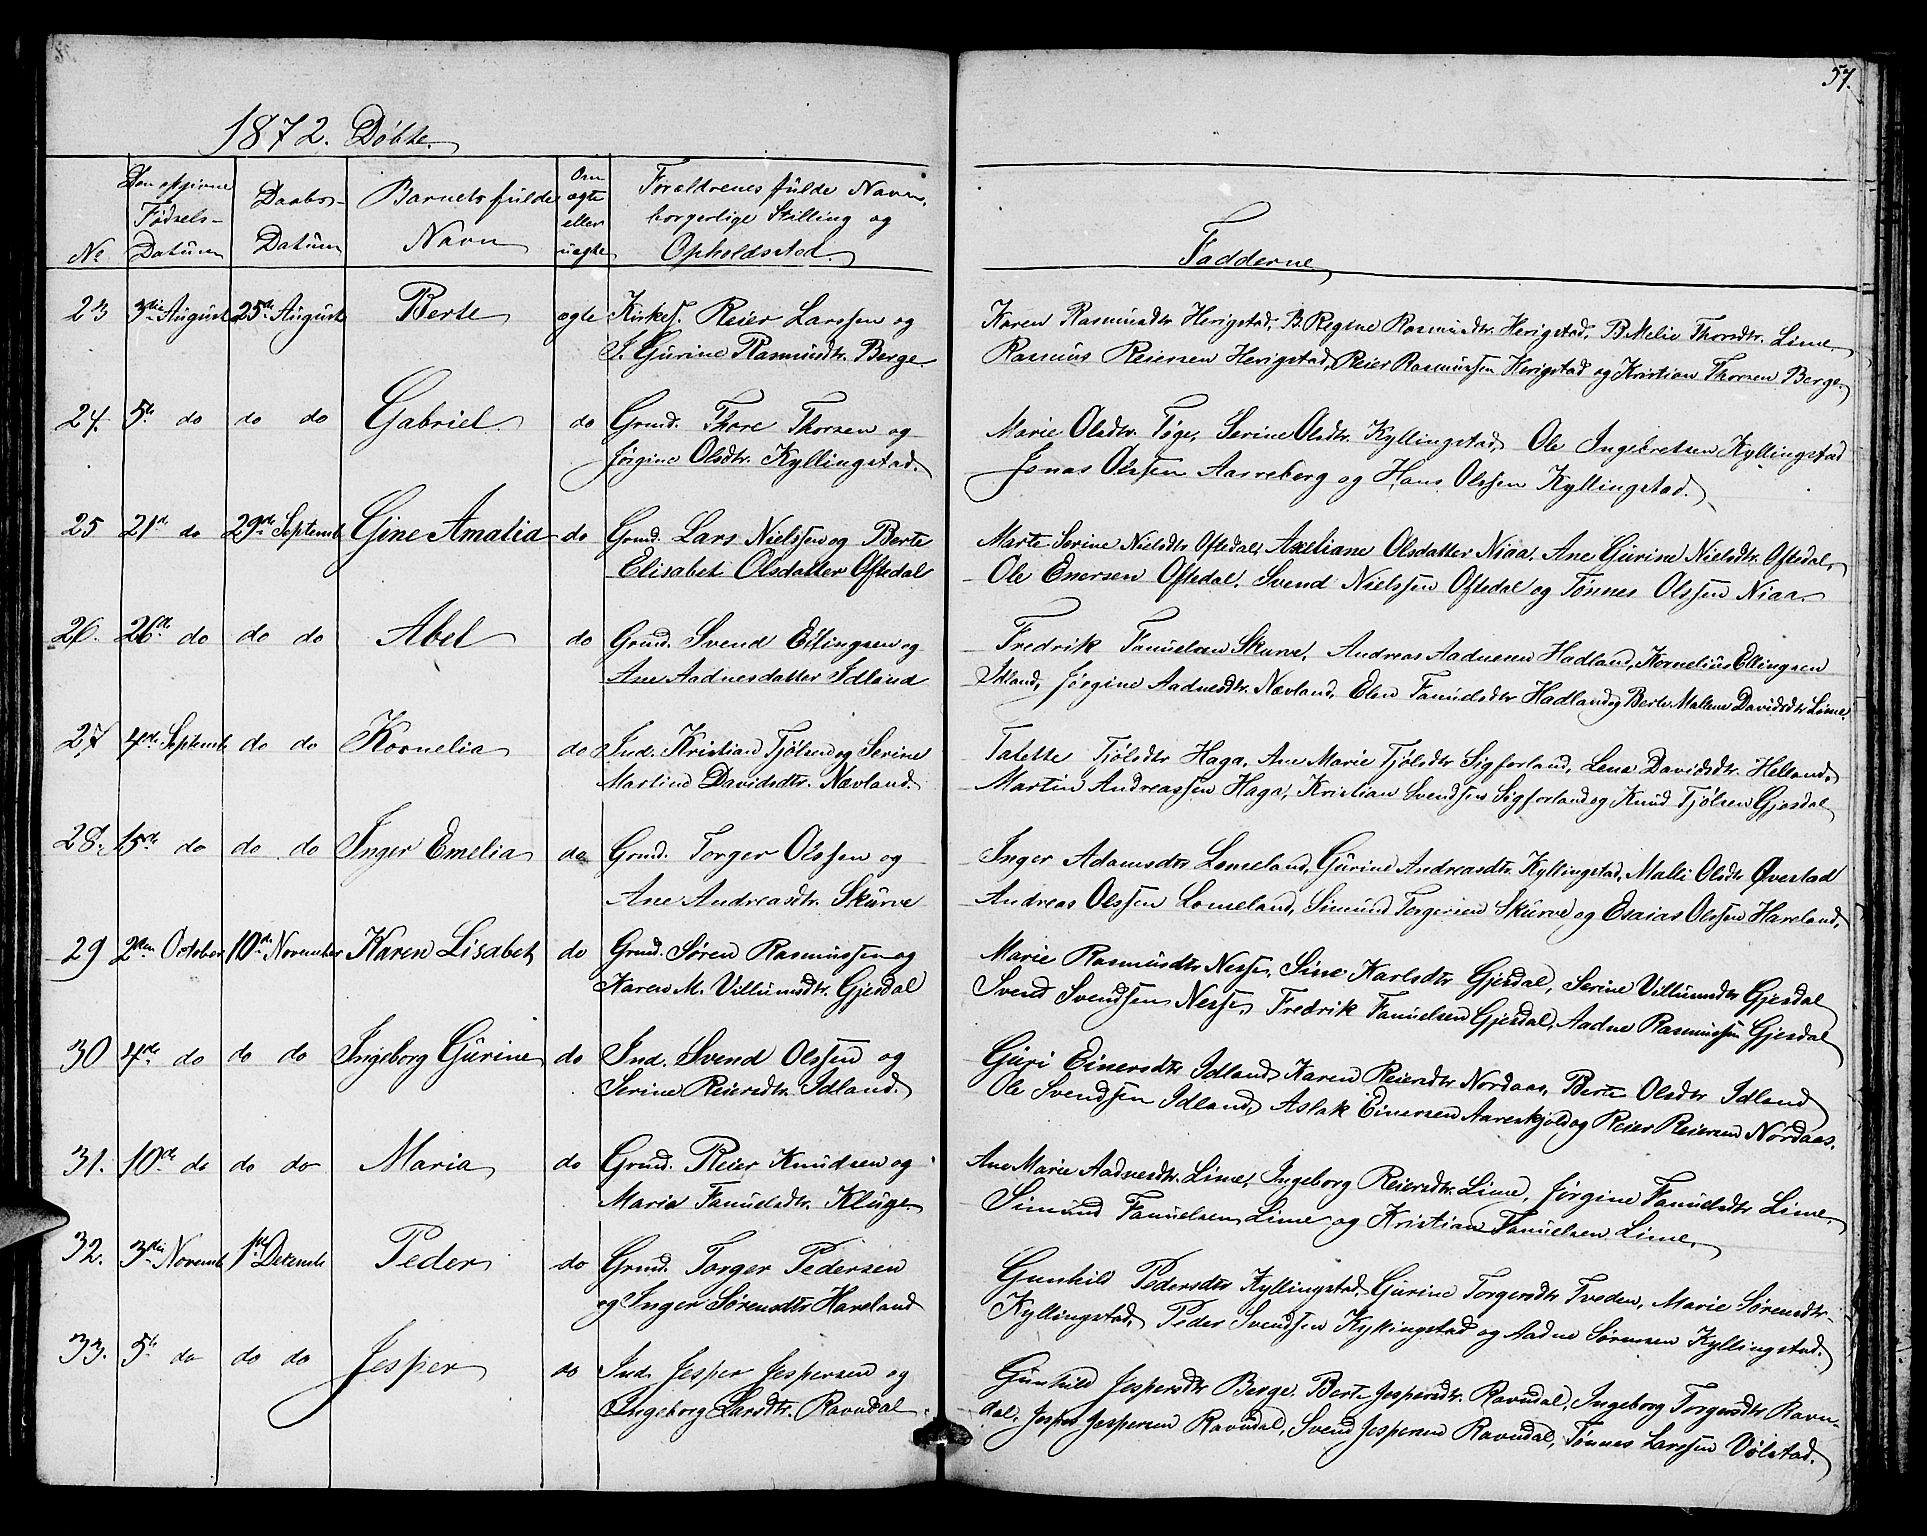 57.
1872. Døbte.
No
Den opgivne Fødsels-Datum
Daabs-Datum
Barnets fulde Navn
Om ægte eller uægte
Forældrenes fulde Navn, borgerlige Stilling og Opholdssted.
Fadderne
23 3die August 25de August Berte ægte Kirkes. Reier Larssen og
S. Gurine Rasmusdtr. Berge.
Karen Rasmusdtr Herigstad, B. Regine Rasmusdtr. Herigstad, B. Melie Thorsdtr. Lime,
Rasmus Reiersen Herigstad, Reier Rasmussen Herigstad og Kristian Thorsen Berge.
24. 5te do do do Gabriel do Grmd. Thore Thorsen og
Jørgine Olsdtr. Kyllingstad.
Marie Olsdtr. Tøge, Serine Olsdtr. Kyllingstad, Ole Ingebretsen Kyllingstad
Jonas Olssen Aarreberg og Hans Olssen Kyllingstad.
25 21de do 29de Septemb. Gine Amalia do Grmd. Lars Nielssen og Berte
Elisabet Olsdatter Oftedal
Marte Serine Nielsdtr Oftedal, Axeliane Olsdatter Niaa, Ane Gurine Nielsdtr. Oftedal,
Ole Enersen Oftedal, Svend Nielssen Oftedal og Tønnes Olssen Niaa.
26. 26de do do do Abel do Grmd. Svend Ellingsen og
Ane Aadnesdatter Idland
Fredrik Fanuelsen Skurve, Andreas Aadnesen Hadland, Kornelius Ellingsen
Idland, Jørgine Aadnesdtr. Nævland, Elen Fanuelsdtr Hadland og Berte Malene Davidsdtr Lime.
27 4de Septemb. do do Kornelia do Ind. Kristian Tjølsen og Serine
Martine Davidsdtr. Nævland.
Talette Tjølsdtr Haga, Ane Marie Tjølsdtr Sigforland, Lene Davidsdtr. Helland,
Martin Andreassen Haga, Kristian Svendsen Sigforland og Knud Tjølsen Gjesdal
28. 15de do do do Inger Emelia do Grmd. Torger Olssen og
Ane Andreasdtr. Skurve
Inger Adamsdtr Lomeland, Gurine Andreasdtr. Kyllingstad, Malli Olsdtr Øvestad
Andreas Olssen Lomeland, Simund Torgersen Skurve og Esaias Olssen Haveland,
29 2den October 10de November Karen Lisabet do Grmd. Søren Rasmussen og
Karen M. Villumsdtr. Gjesdal
Marie Rasmusdtr Nesse, Sine Karlsdtr Gjesdal, Serine Villumsdtr Gjesdal
Svend Svendsen Nesse, Fredrik Fanuelsen Gjesdal, Aadne Rasmussen Gjesdal
30 4de do do do Ingeborg Gurine do Ind. Svend Olssen og
Serine Reiersdtr. Idland.
Guri Einersdtr Idland, Karen Reiersdtr Nordaas, Berte Olsdtr Idland
Ole Svendsen Idland, Aslak Einersen Aareskjold og Reier Reiersen Nordaas.
31. 10de do do do Maria do Grmd. Reier Knudsen og
Maria Fanuelsdtr. Kluge.
Ane Marie Aadnesdtr. Lime, Ingeborg Reiersdtr. Lime, Jørgine Fanuelsdtr Lime,
Simund Fanuelsen Lime og Kristian Fanuelsen Lime.
32. 3die Novemb. 1ste Decemb. Peder do Grmd. Torger Pedersen
og Inger Sørensdtr Haveland
Gunhild Pedersdtr Kyllingstad, Gurine Torgersdtr Tveden, Marie Sørensdtr.
Kyllingstad, Peder Svendsen Kyllingstad og Aadne Sørensen Kyllingstad.
33. 5te do do do Jesper do Ind. Jesper Jespersen og
Ingeborg Larsdtr. Ravndal.
Gunhild Jespersdtr Berge, Berte Jespersdtr. Ravndal, Ingeborg Torgersdtr Ravn-
dal, Jesper Jespersen Ravndal, Svend Jespersen Ravndal, Tønnes Larssen Vølstad.